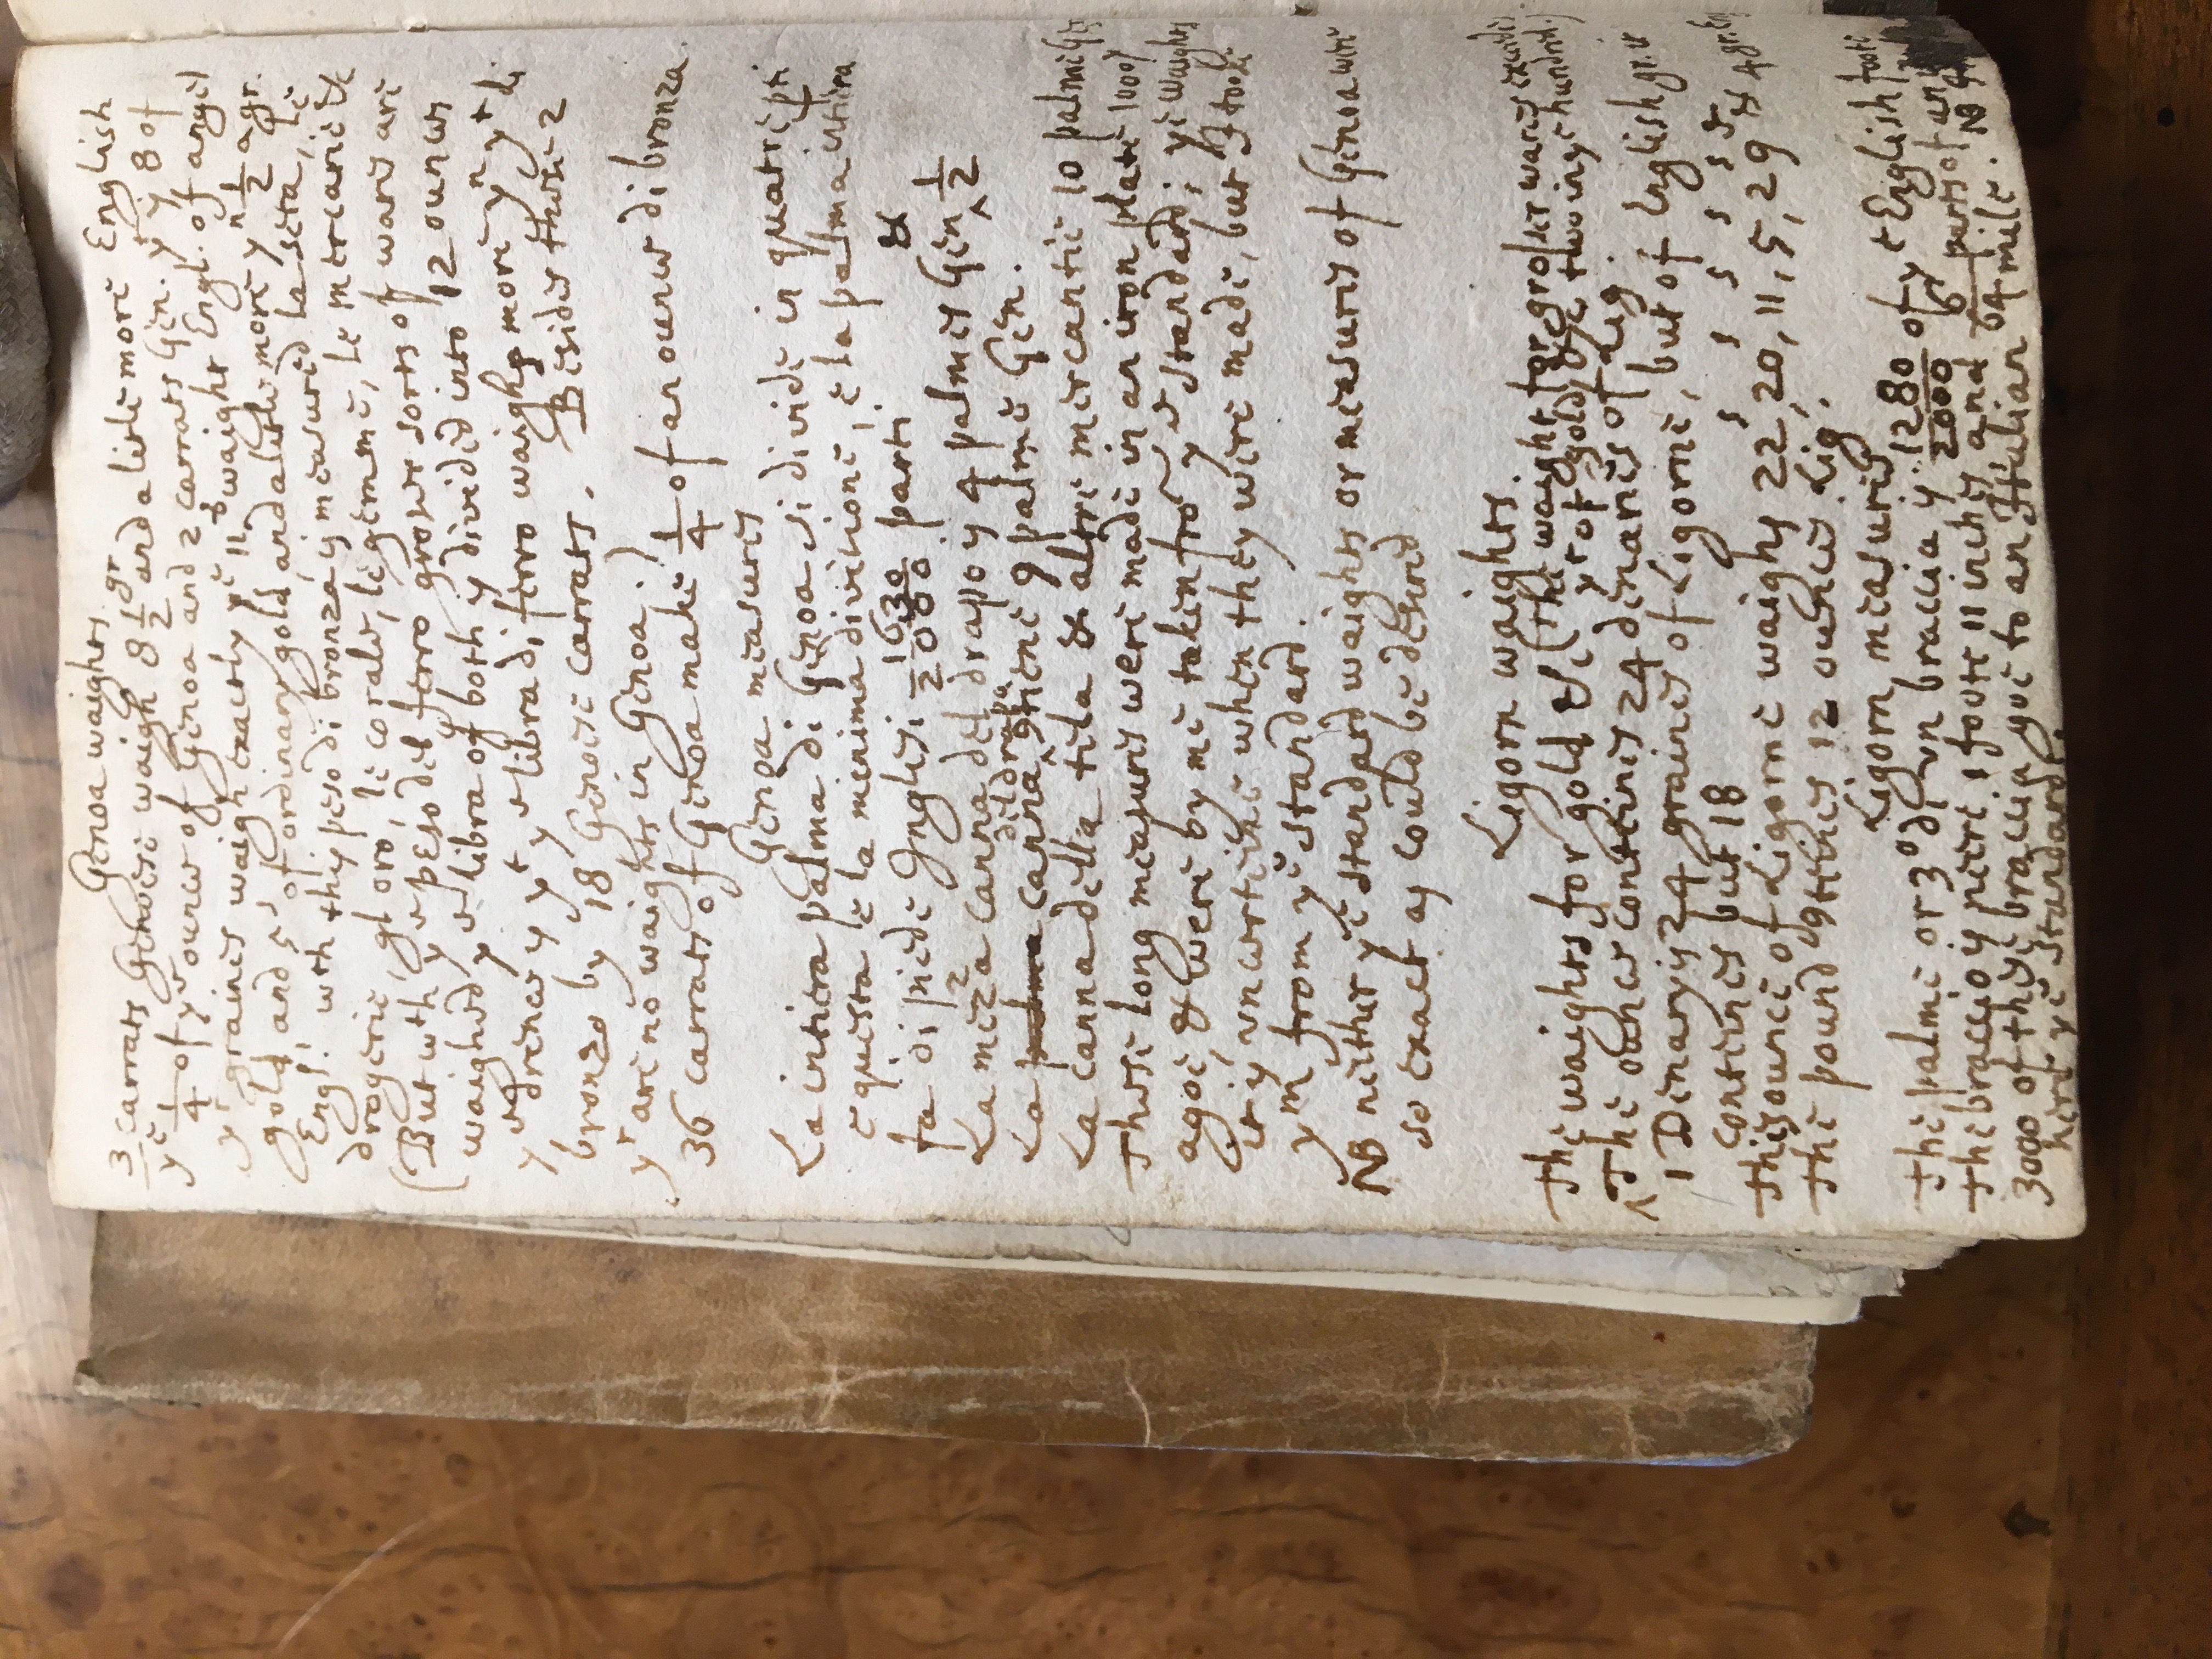 Genoa waights
3 carrats Genovese waigh 8 1/2 gr and a litle more English
ye 1/4 of ye ounce of Genoa and 2 carrats Gen. yt ye 8 of
ye graines waigh exactly ye 11 waight Engl. of angel
gold and 5 s of ordinary gold and a litle more yn 1/2 a gr.
Engl. wth this peso di bronza is measured la seta, le
drogerie, gl oro, le coralt, le gemme, le mercantie &c
(But wth ye peso del ferro grosser sorts of wares are
waighed) ye libra of both is divided into 12 ounces
ye difference is yt ye libra di ferro waighs more yn yt di
bronzo by 18 Genoese carrats. Besides these 2
yr are no waights in Genoa.)
36 carrats of Genoa make 1/4 of an ounce di bronza.
Genoa measures
La intera palma di Genoa si divide in quatri pti
e questa e la menima divisione, e la palma intera
fa di piede Inglesi 1630/2000 parti
La meza canna del drapo is 4 palmes Gen & 1/2
La canna di drapo 9tiene 9 palme Gen.
La canna della tela & altre mercantie 10 palmi Gen
These long measures were made in an iron plate 100 y
agoe & were by me taken from ye standard; ye waights
it is uncerteine when they were made, but I tooke
ym from ye standard.
NB neither ye standard waights or measures of Genoa were
so exact as could be desired
Ligorn waights.
The waights for gold &c (The waight for grosser wares exceedes
yt of gold &c two in ye hundred.)
The ounce conteines 24 denaries of Lig.
1 Denary is 24 graines of Ligorne, but of English gr. it
conteines but 18
The ounce of Ligorne waighs 22, 20, 11, 5, 29 & 4 gr. Eng
The pound 9teines 12 ounces Lig.
Ligorn measures
The palme or 3o di un braccia is 1280/2000 of ye English foote
The braccio is neere 1 foote 11 inches and 6/64 parts of an
3000 of these braccia goe to an Ittalian mile. NB
here ye standard.